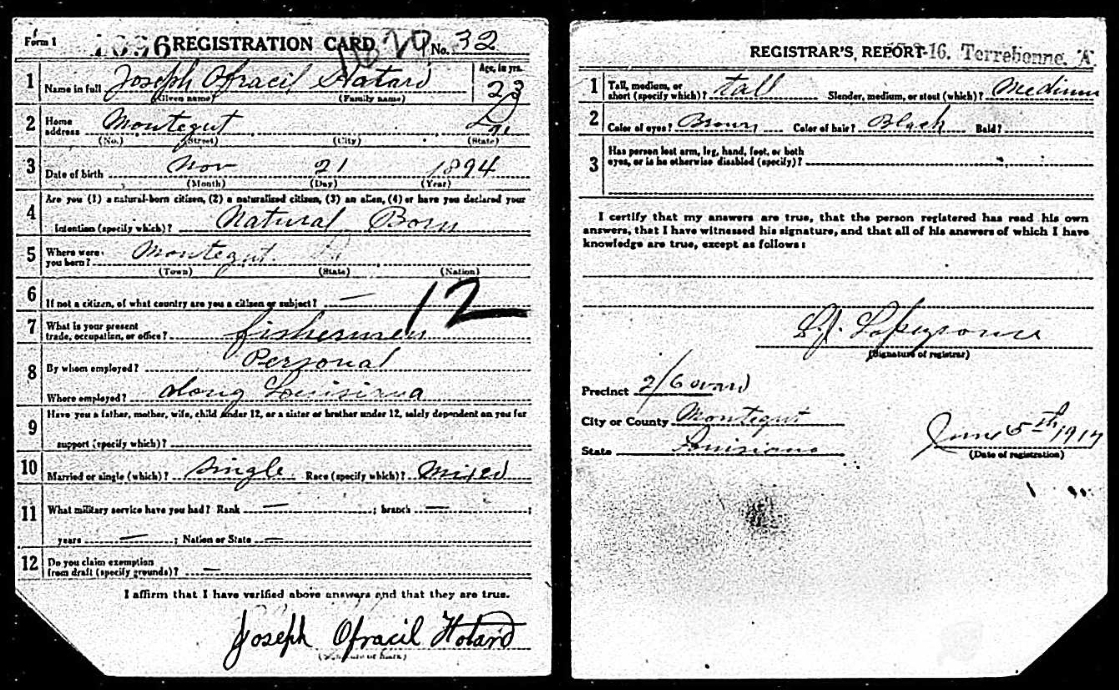 Form 1 1096 REGISTRATION CARD No. 32
1 Name in full Joseph Ofracil Hotard Age, in yrs. 23
(Given name) (Family name)
2 Home address Montegut La
(No.) (Street) (City) (State)
3 Date of birth Nov 21 1894
(Month) (Day) (Year)
4 Are you (1) a natural-born citizen, (2) a naturalized citizen, (3) an alien, (4) or have you declared your
intention (specify which)? Natural Born
5 Where were you born? Montegut
(Town) (State) (Nation)
6 If not a citizen, of what country are you a citizen or subject? —
12
7 What is your present trade, occupation, or office? fishermen
8 By whom employed? Personal
Where employed? along Louisiana
9 Have you a father, mother, wife, child under 12, or a sister or brother under 12, solely dependent on you for
support (specify which)?
10 Married or single (which)? Single Race (specify which)? Mixed
11 What military service have you had? Rank — ; branch — ;
years — ; Nation or State —
12 Do you claim exemption from draft (specify grounds)? —
I affirm that I have verified above answers and that they are true.
Joseph Ofracil Hotard
REGISTRAR'S REPORT -16. Terrebonne, A
1 Tall, medium, or short (specify which)? tall Slender, medium, or stout (which)? Medium
2 Color of eyes? Brown Color of hair? Black Bald?
3 Has person lost arm, leg, hand, foot, or both
eyes, or is he otherwise disabled (specify)?
I certify that my answers are true, that the person registered has read his own
answers, that I have witnessed his signature, and that all of his answers of which I have
knowledge are true, except as follows:
(Signature of registrar)
Precinct 2/6 ward
City or County Montegut
State Louisiana
June 5th 1917
(Date of registration)